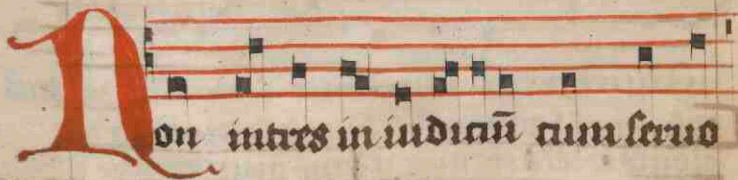 Non intres in iudiciū cum seruo